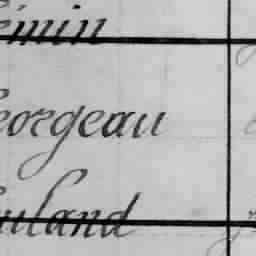 émin
eorgeau
uland